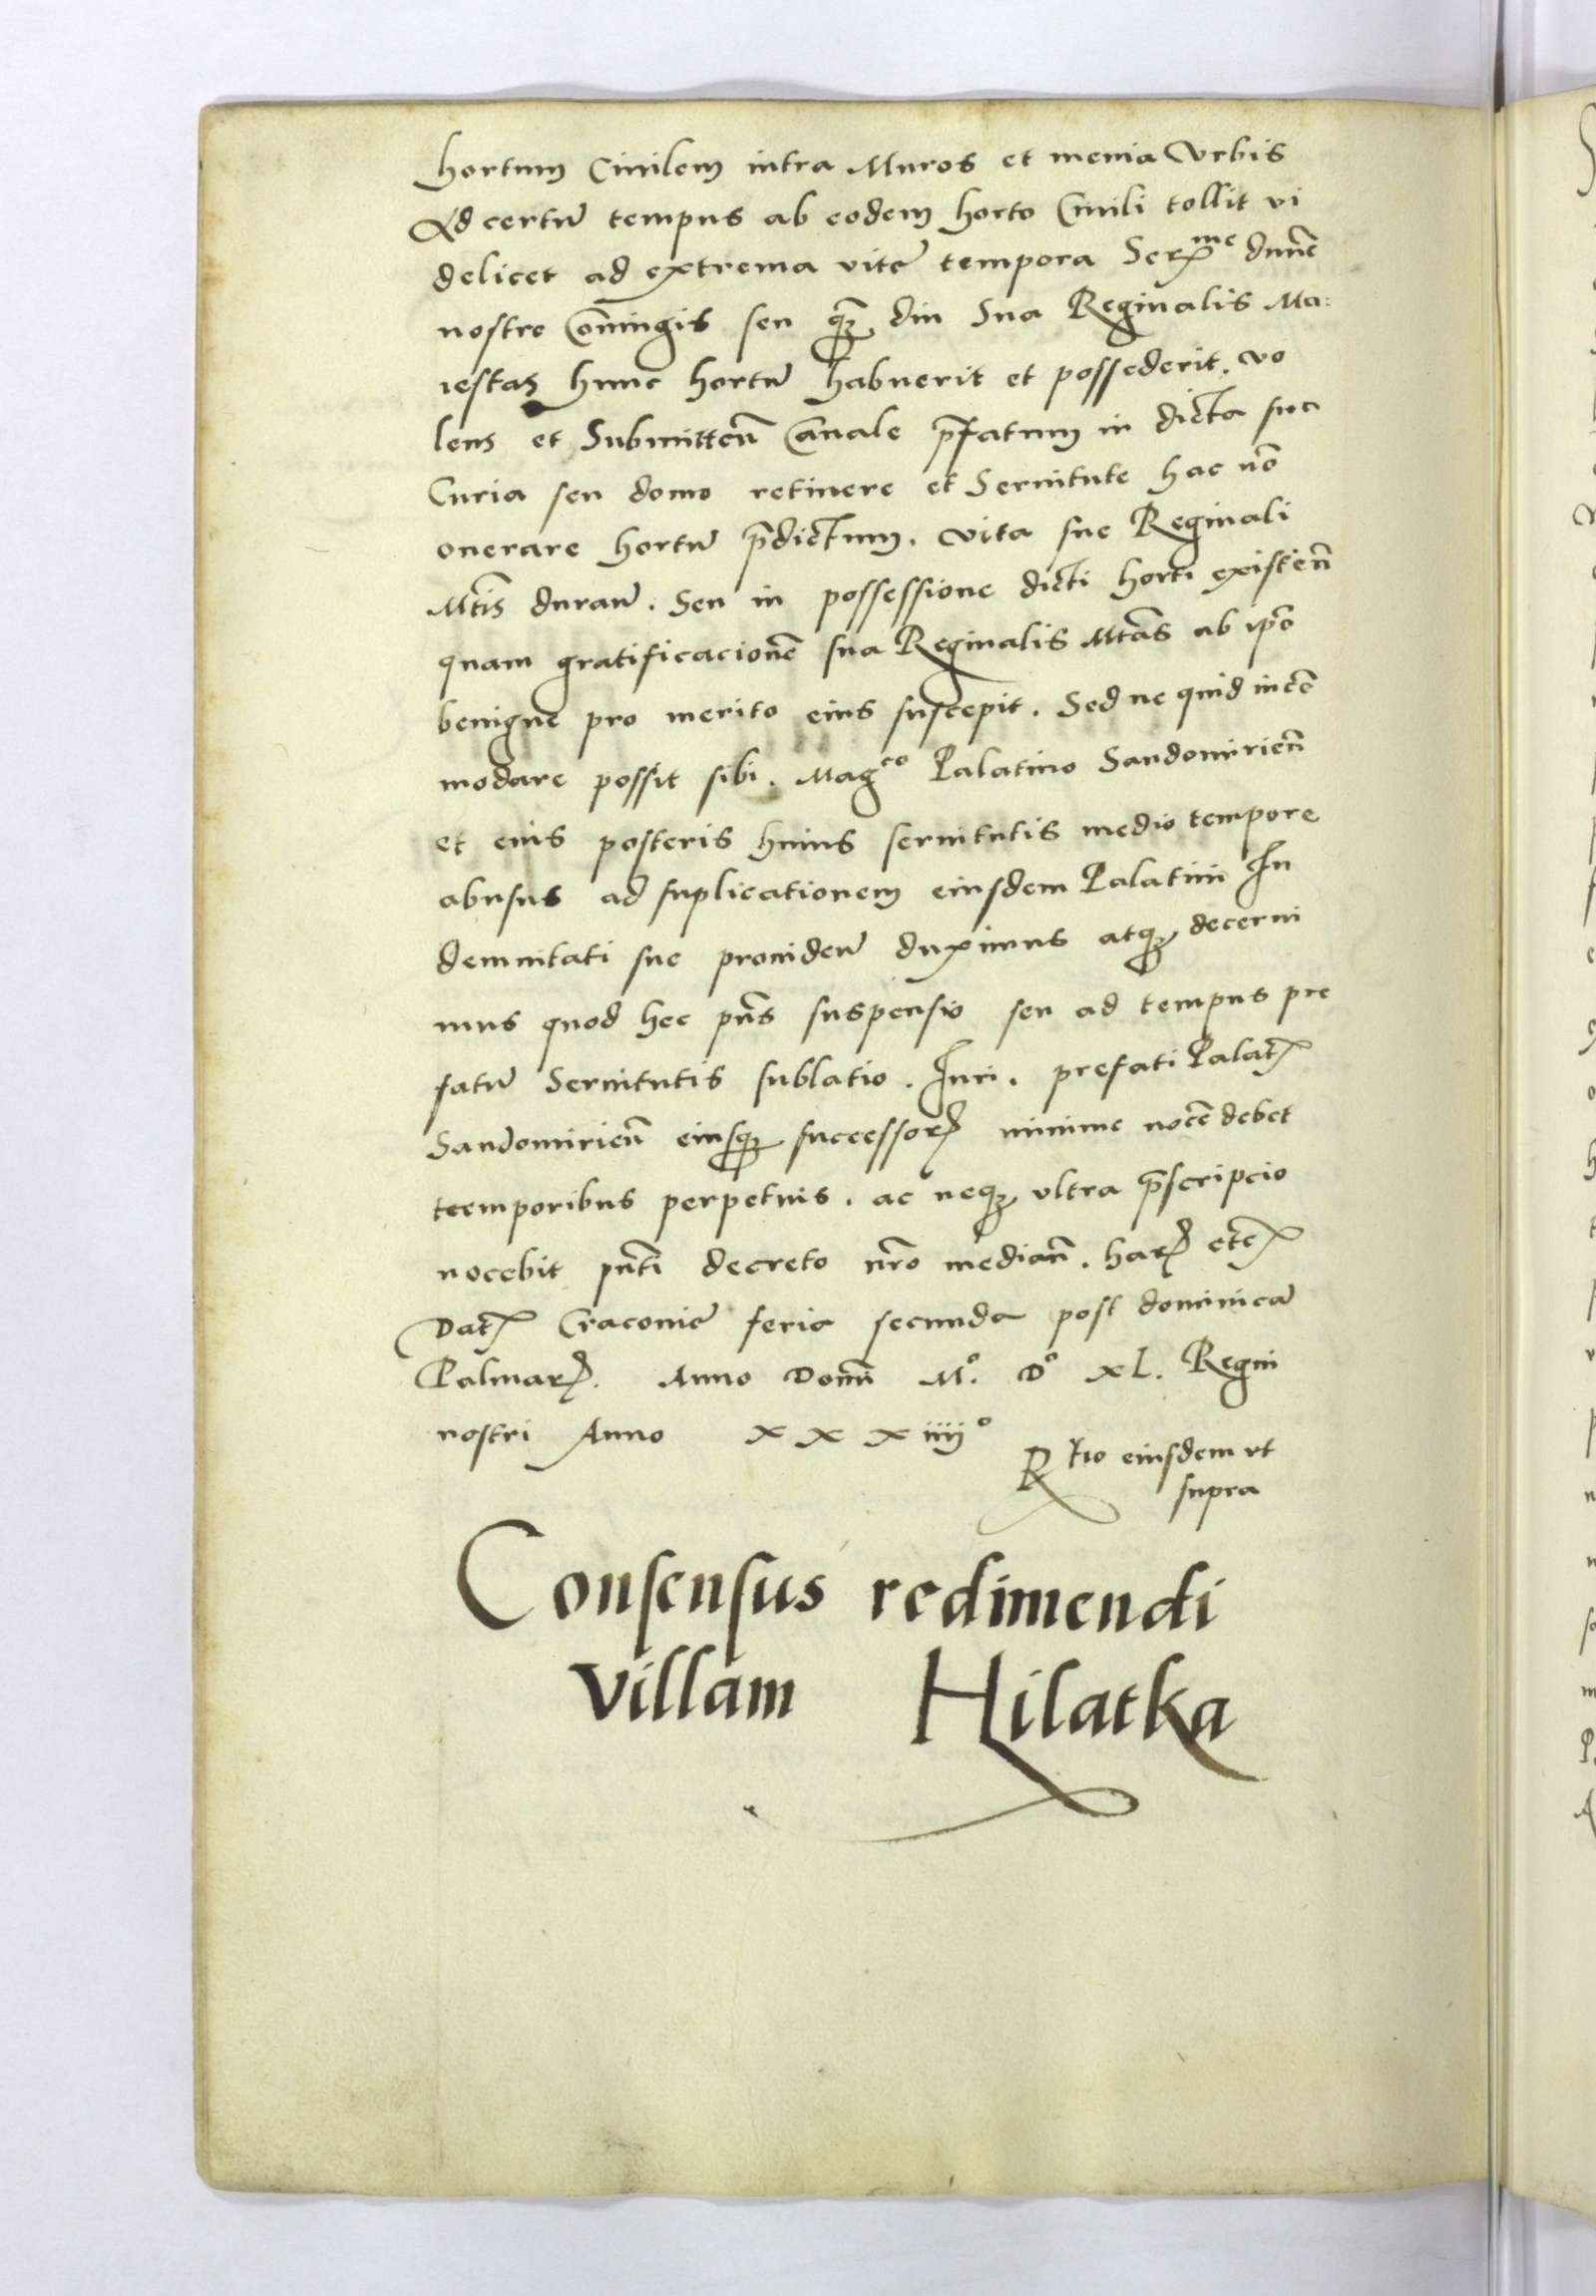 hortum Civilem intra Muros et menia Vrbis
Ad certũ tempus ab eodem horto Civili tollit vi
delicet ad extrema vite tempora Serᵐᵉ dnne
nostre Coniugis seu qᷓꝫ diu Sua Reginalis Ma:
iestas hunc hortũ habuerit et possederit. vo
lens et Submitteñ Canale p̃fatum in dicta sua
Curia seu domo retinere et Servitute hac nõ
onerare hortũ p̃dictum. Vita sue Reginali
Mtis durañ. Seu in possessione dicti horti existeñ
quam gratificacionẽ sua Reginalis Mtas ab ip̃o
benigne pro merito eius suscepit. Sed ne quid incõ
modare possit sibi. Magᶜᵒ Palatino Sandomirieñ
et eius posteris huius servitutis medio tempore
abusus ad suplicationem eiusdem Palatini In
demnitati sue providenꝰ duximus atqꝫ decerni
mus quod hec pñs suspensio seu ad tempus pre
fatũ Servitutis sublatio. Iuri. prefati Palatꝭ
Sandomirieñ eiusqꝫ successorꝭ minime nocẽ debet
teemporibus perpetuis. ac neqꝫ vltra p̃scripcio
nocebit pñti decreto nr̃o mediañ. harꝭ etcꝭ
Datꝭ Cracovie feria secunda post dominicã
Palmarꝭ. Anno Domĩ M°. D° XL. Regni
nostri Anno XXXiiij°
Rtio eiusdem vt
supra
Consensus redimendi
villam Hilatka